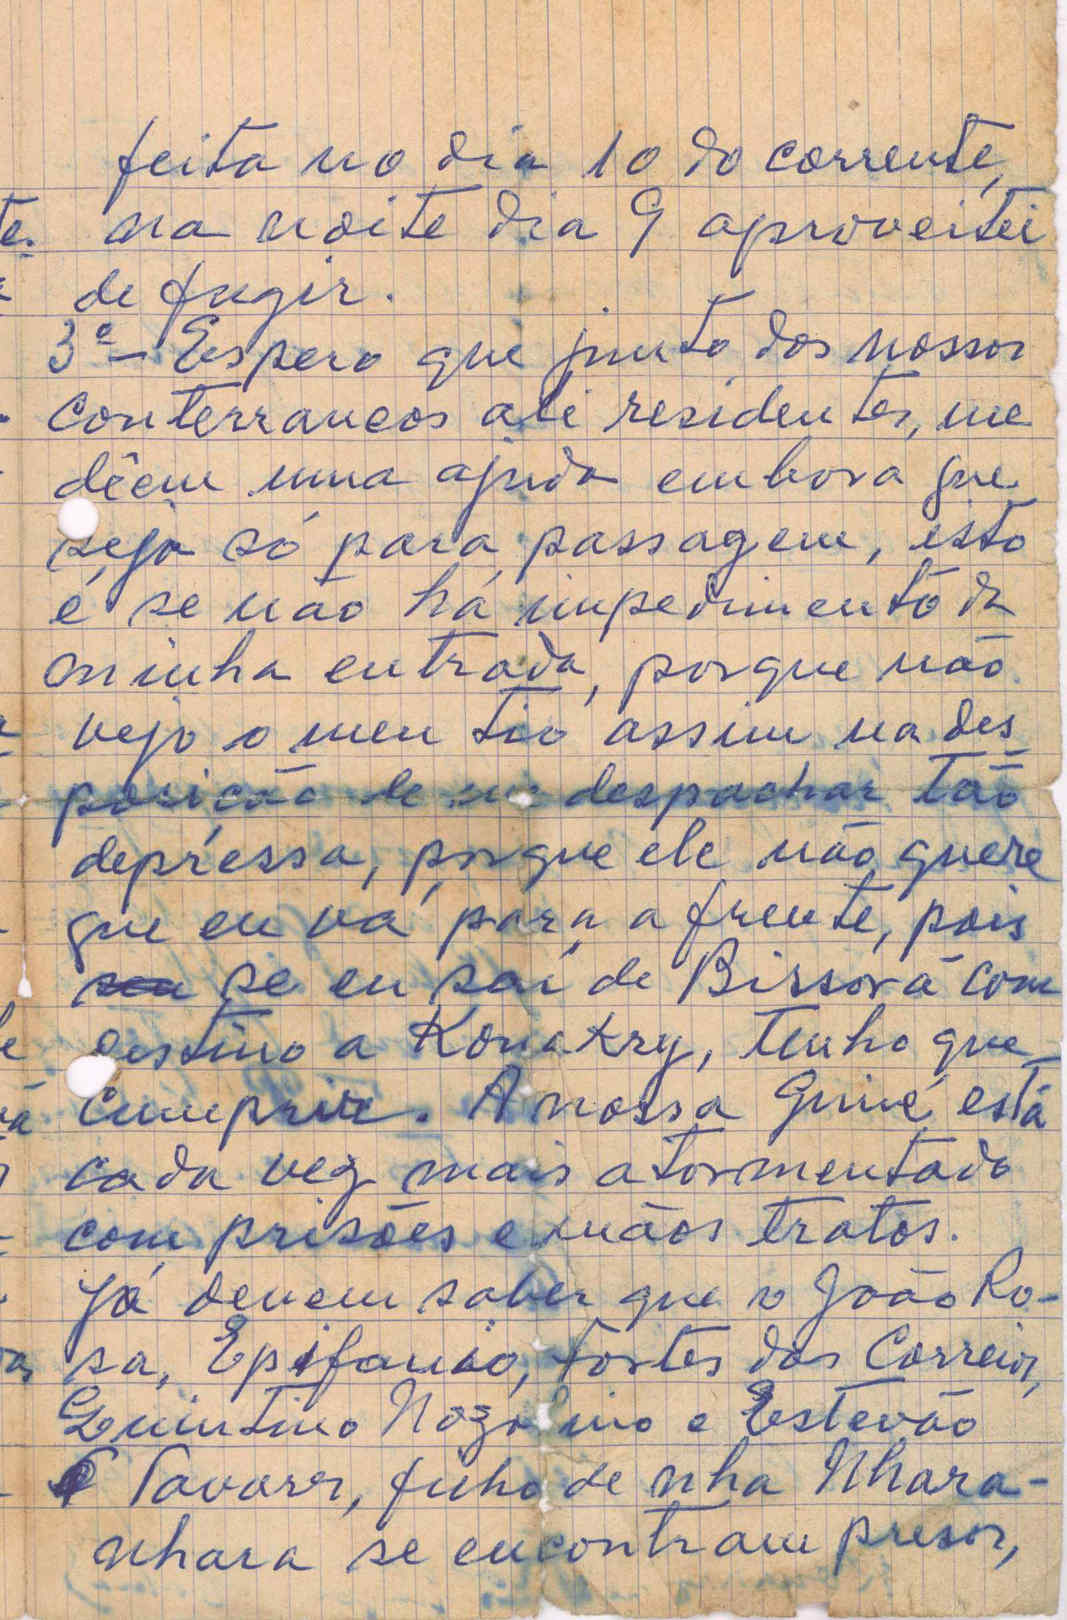 feita no dia 10 do corrente,
na noite dia 9 aproveitei
de fugir.
3º- Espero que junto dos nossos
conterraneos ali residentes, me
dêem uma ajuda embora que
seja só para passagem, isto
é se não há impedimento da
minha entrada, porque não
vejo o meu tio assim na des
posicão de me despachar tão
depressa, porque ele não quere
que eu vá para a frente, pois
se eu saí de Bissorã com
destino a Konakry, tenho que
cumprir. A nossa Guiné está
cada vez mais atormentada
com prisões e mãos tratos.
Já devem saber que o João Ro-
sa, Epifanio, Fortes dos Correios,
Quintino Nozolino e Estevão
Tavares, filho de nha Nhara-
nhara se encontram presos,